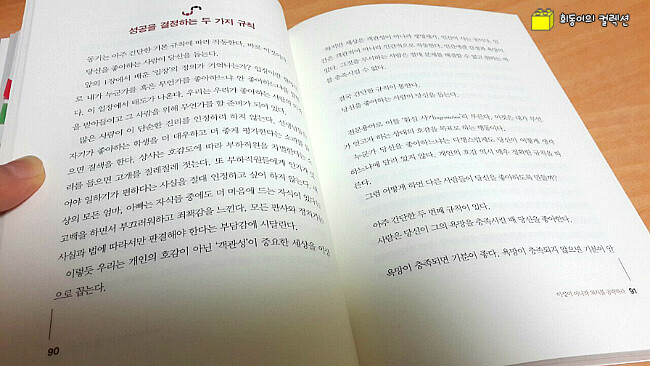 회동이의 컬렉션
성공을 결정하는 두 가지 규칙
동기는 아주 간단한 기본 규칙에 따라 작동한다. 바로 이것이다.
당신을 좋아하는 사람이 당신을 돕는다.
앞의 1장에서 배운 '입장'의 정의가 기억나는가? 입장이란
로 내가 누군가를 혹은 무언가를 좋아하느냐 안 좋아하느냐
다. 이 입장에서 태도가 나온다. 우리는 우리가 좋아하는
을 받아들이고 그 사람을 위해 무언가를 할 준비가 되어 있다.
많은 사람이 이 단순한 진리를 인정하려 하지 않는다. 선생님들은
자기가 좋아하는 학생을 더 대우하고 더 좋게 평가한다는 소리를
으면 질색을 한다. 상사는 호감도에 따라 부하직원을 차별한다는
리를 들으면 고개를 절레절레 젓는다. 또 부하직원들에게 인기가
아야 일하기가 편하다는 사실을 절대 인정하고 싶어 하지 않는다.
상의 모든 엄마, 아빠는 자식들 중에도 더 마음에 드는 자식이 있다는
고백을 하면서 부끄러워하고 죄책감을 느낀다. 모든 판사와 정치가는
사실과 법에 따라서만 판결해야 한다는 부담감에 시달린다.
이렇듯 우리는 개인의 호감이 아닌 '객관성'이 중요한 세상을 이상
으로 꼽는다.
90
하지만 세상은 객관성이 아니라 쟁탈제가, 인간이 사는 곳이다. 인
간은 객관적이 아니라 인간적으로 작동한다. 인간에겐 감정과 욕망이
있다. 그것을 무시하는 사람은 절대 문제를 해결할 수 없고 원하는 바
를 충족시킬 수 없다.
결국 간단한 규칙이 통한다.
당신을 좋아하는 사람이 당신을 돕는다.
전문용어로 이를 '환심 사기'라 부른다. 이것은 내가 무언
가 얻고자 하는 상대의 호감을 목표로 하는 행동이다.
누군가 당신을 좋아하느냐는 다행스럽게도 당신이 어떻게 생각
하느냐에 달려 있지 않다. 개인의 호감 역시 매우 정확한 규칙을 따
른다.
그럼 어떻게 하면 다른 사람들이 당신을 좋아하도록 만들까?
아주 간단한 두 번째 규칙이 있다.
사람은 당신이 그의 욕망을 충족시킬 때 당신을 좋아한다.
욕망이 충족되면 기분이 좋다. 욕망이 충족되지 않으면 기분이 안
이성이 아니라 욕망을 공략하라
91